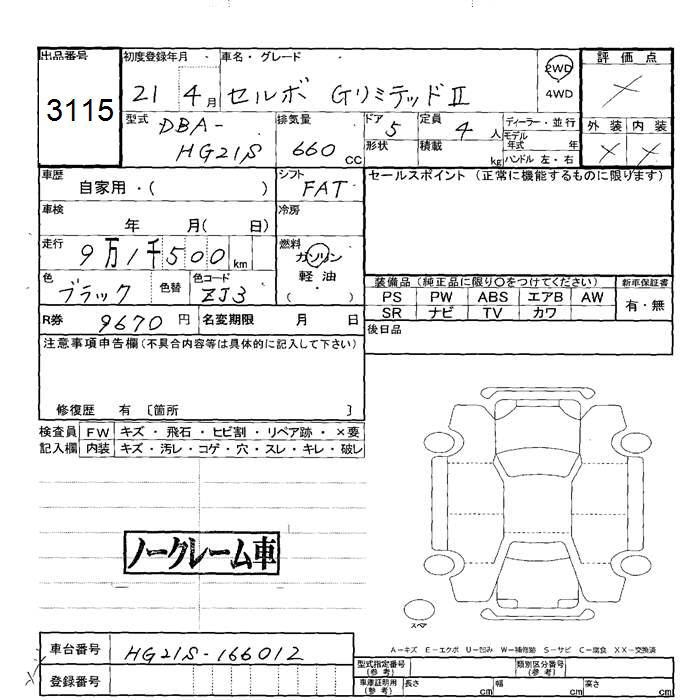 出品番号 初度登録年月 車名・グレード 2WD 評価点
3115 21 4月 セルボ GリミテッドⅡ 4WD
型式 DBA- 排気量 ドア 5 定員 4人 ディーラー・並行 外装 内装
HG21S 660cc 形状 積載 kg モデル年式 年
ハンドル 左・右
車歴 自家用・( ) シフト FAT セールスポイント (正常に機能するものに限ります)
車検 年 月( 日) 冷房
走行 9万1千500km 燃料 ガソリン
軽油
( )
色 ブラック 色替 色コード ZJ3
装備品 (純正品に限り〇をつけてください) 新車保証書
PS PW ABS エアB AW 有・無
SR ナビ TV カワ
R券 9670円 名変期限 月 日 後日品
注意事項申告欄(不具合内容等は具体的に記入して下さい)
修復歴 有 〔箇所 〕
検査員 FW キズ・飛石・ヒビ割・リペア跡・×要
記入欄 内装 キズ・汚レ・コゲ・穴・スレ・キレ・破レ
ノークレーム車
スペア
A-キズ E-エクボ U-凹み W-補修跡 S-サビ C-腐食 XX-交換済
車台番号 HG21S-166012 型式指定番号(参考) 類別区分番号(参考)
登録番号 車庫証明用(参考) 長さ cm 幅 cm 高さ cm